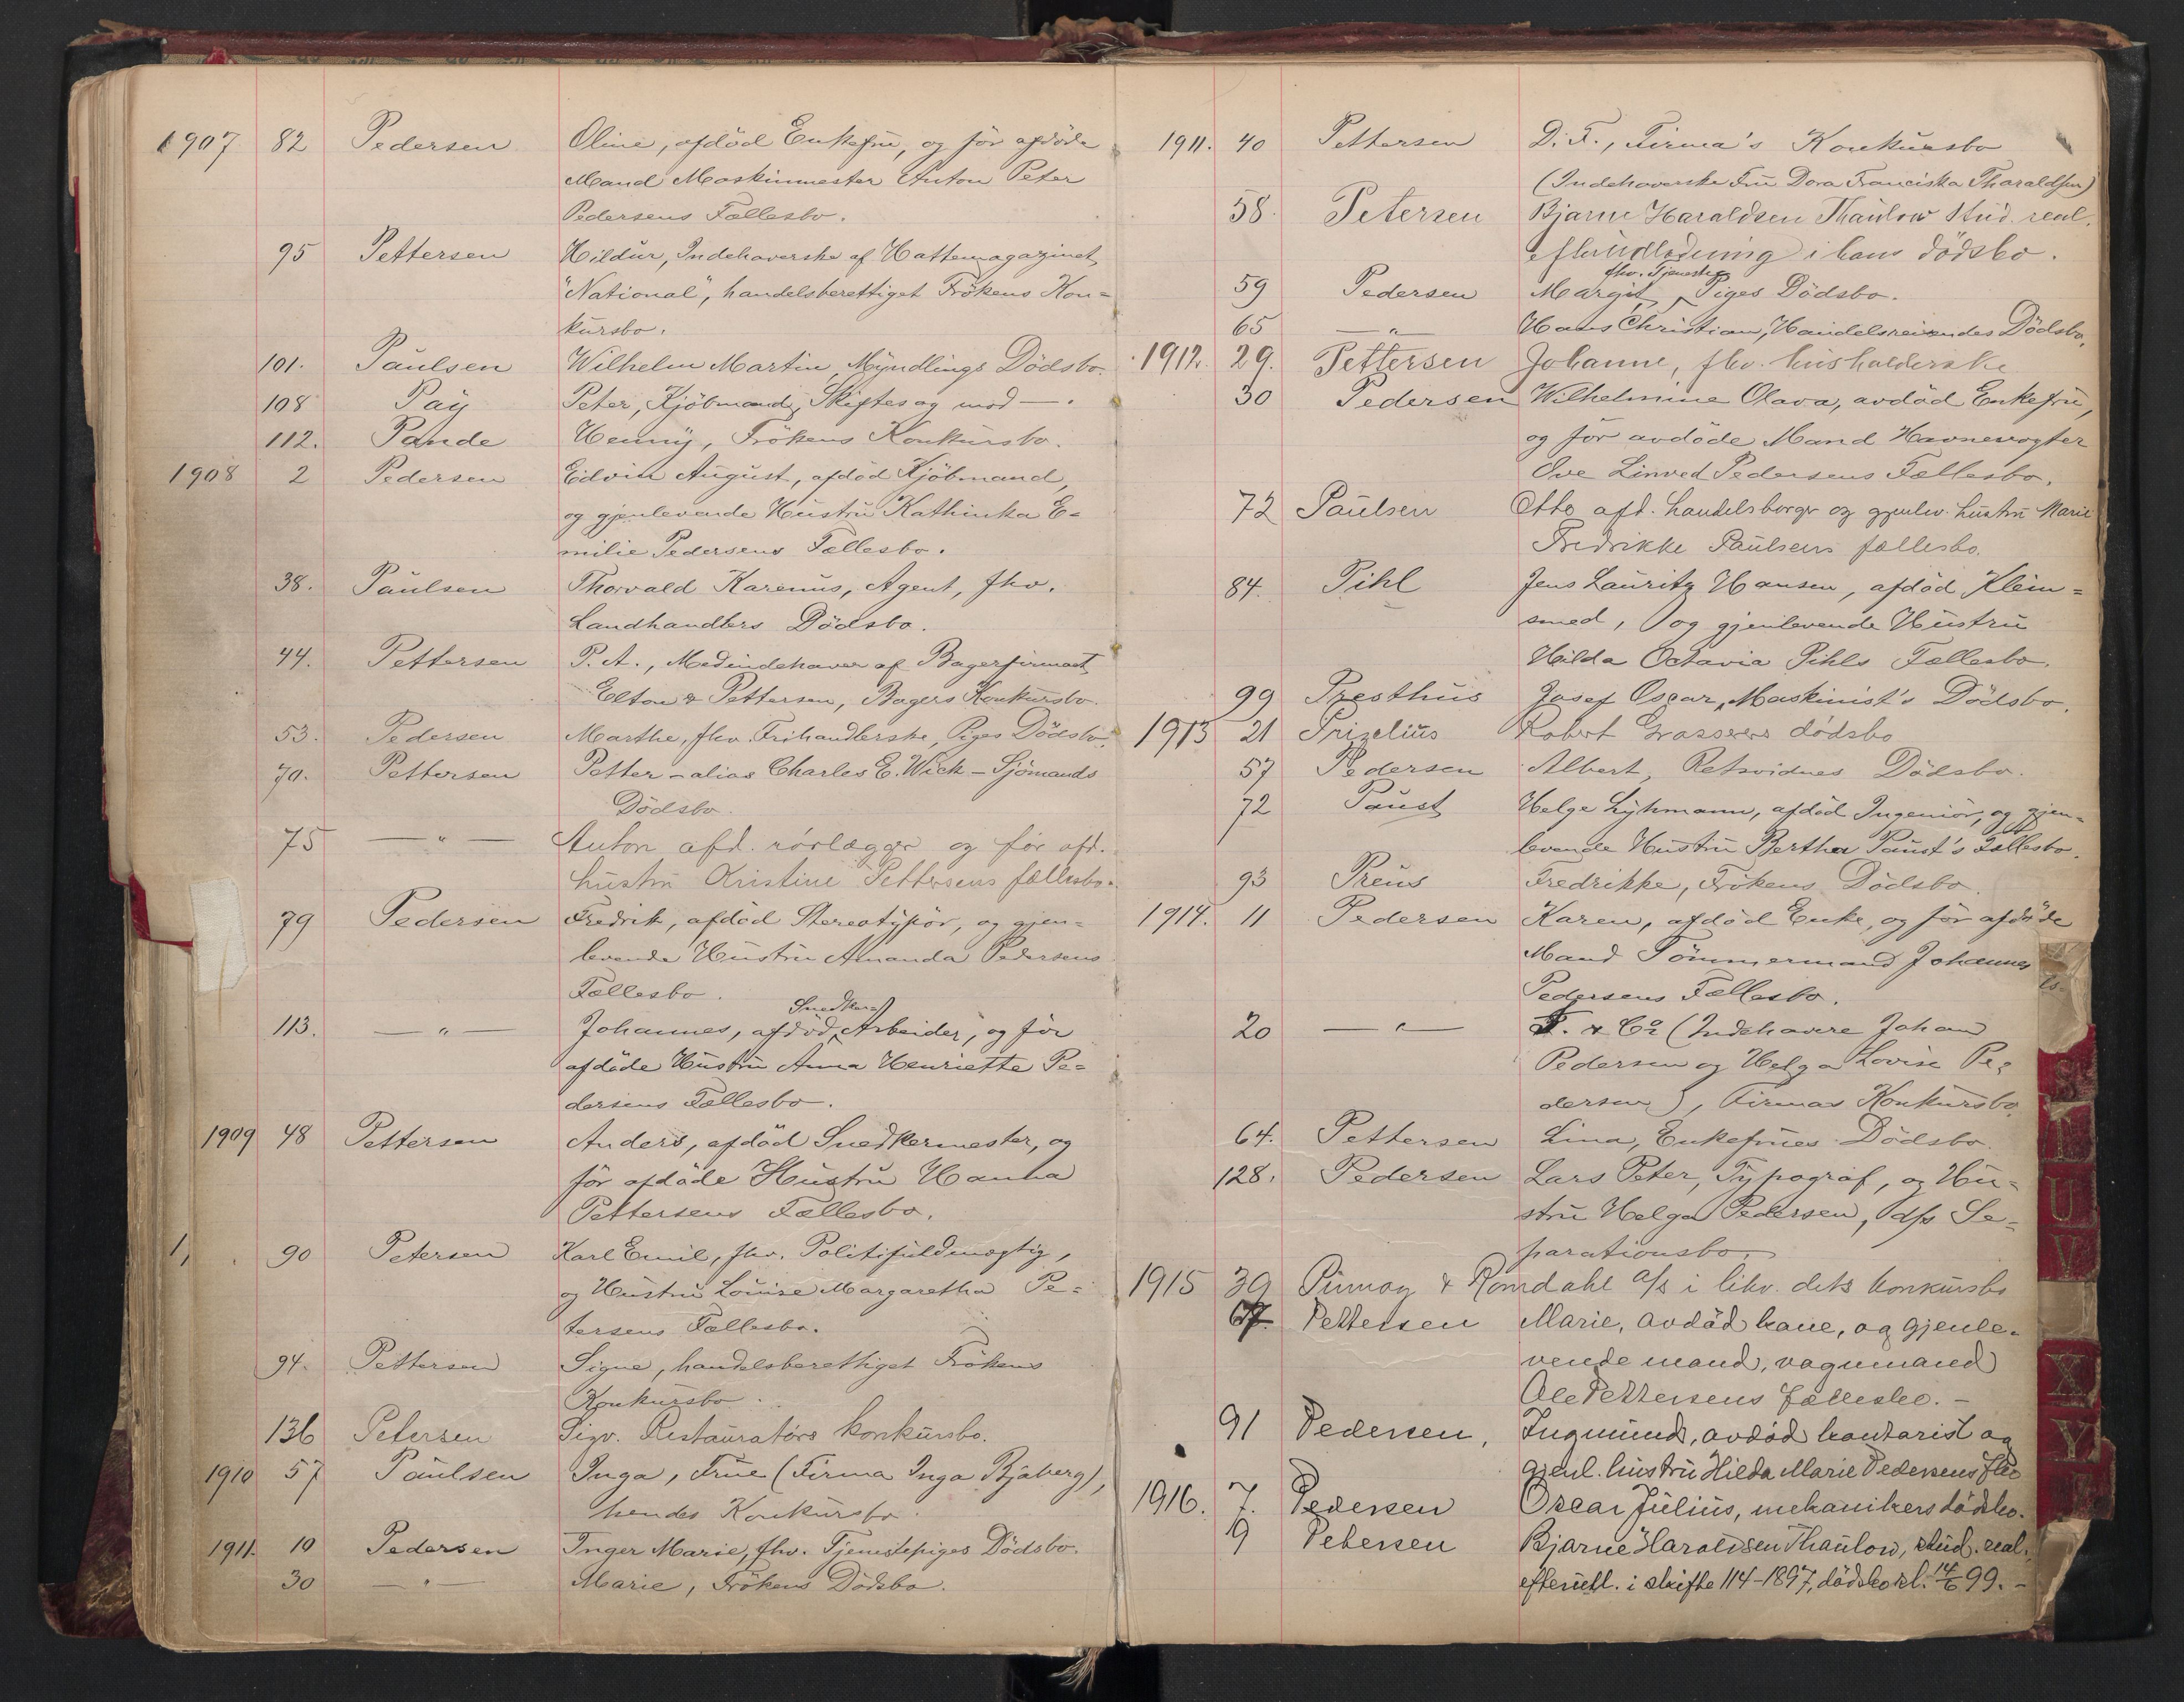 1907 82 Pedersen Oline, afdöd Enkefru, og för afdöde
Mand Maskinmester Anton Peter
Pedersens Fællesbo.
95 Pettersen Hildur, Indehaverske af Hattemagazinet
"National", handelsberettiget Frökens Kon=
kursbo.
101. Paulsen Wilhelm Martin, Myndlings Dödsbo.
108 Pay Peter, Kjöbmand, Skiftesag mod —.
112. Pande Henny, Frökens Konkursbo.
1908 2 Pedersen Edvin August, afdöd Kjöbmand,
og gjenlevende Hustru Kathinka E=
milie Pedersens Fællesbo.
38. Paulsen Thorvald Karenus, Agent, fhv.
Landhandlers Dödsbo.
44. Pettersen P. A., Medindehaver af Bagerfirmaet
Elton & Pettersen, Bagers Konkursbo.
53. Pedersen Marthe, fhv. Frihandlerske, Piges Dödsbo.
70. Pettersen Petter – alias Charles E. Wick – Sjömands
Dödsbo.
75 — " — Anton afd. rörlægger og för afd.
hustru Kristine Pettersens fællesbo.
79 Pedersen Fredrik, afdöd Stereotypör, og gjen=
levende Hustru Amanda Pedersens
Fællesbo.
Snedker
113. — " — Johannes, afdöd Arbeider, og för
afdöde Hustru Anna Henriette Pe=
dersens Fællesbo.
1909 48 Pettersen Anders, afdöd Snedkermester, og
för afdöde Hustru Hanna
Pettersens Fællesbo.
90 Petersen Karl Emil, fhv. Politifuldmægtig,
og Hustru Louise Margaretha Pe=
tersens Fællesbo.
94. Pettersen Signe, handelsberettiget Frökens
Konkursbo.
136 Petersen Sigv. Restauratörs konkursbo.
1910 57 Paulsen Inga, Frue (Firma Inga Bjaberg),
hendes Konkursbo.
1911. 10 Pedersen Inger Marie, fhv. Tjenestepiges Dödsbo.
30 — " — Marie, Frökens Dödsbo.
1911. 40 Pettersen D. F., Firma's Konkursbo
(Indehaverske Fru Dora Franciska Tharaldsen)
58. Petersen Bjarne Haraldsen Thaulow stud. real.
efterutlodning i hans dödsbo.
fhv. Tjeneste
59 Pedersen Margit, Piges Dödsbo.
65 — " — Hans Christian, Handelsreisendes Dödsbo.
1912. 29. Pettersen Johanne, fhv. husholderske
30 Pedersen Wilhelmine Olava, avdöd Enkefru,
og för avdöde Mand Havnevogter
Ove Linved Pedersens Fællesbo.
72 Paulsen Otto afd. handelsborger og gjenlev. hustru Marie
Fredrikke Paulsens fællesbo.
84. Pihl Jens Lauritz Hansen, afdöd Klein=
smed, og gjenlevende Hustru
Hilda Octavia Pihls Fællesbo.
99 Presthus Josef Oscar, Maskinist's Dödsbo.
1913 21 Prizelius Robert dödsbo
57 Pedersen Albert, Retsvidnes Dödsbo.
72 Paust Helge Lyhmann, afdöd Ingeniör, og gjen=
levende Hustru Bertha Paust's Fællesbo.
93 Preus Fredrikke, Frökens Dödsbo.
1914. 11 Pedersen Karen, afdöd Enke, og för afdöde
Mand Tömmermand Johannes
Pedersens Fællesbo.
20 — " — F. & Co (Indehavere Johan
Pedersen og Helga Lovise Pe=
dersen), Firmas Konkursbo.
64. Pettersen Lina, Enkefrues Dödsbo.
128. Pedersen Lars Peter, Typograf, og Hu=
stru Helga Pedersen, ds Se=
parationsbo.
1915 39 & Romdahl A/s i likv. dets konkursbo
67. Pettersen Marie, avdöd kone, og gjenle=
vende mand, vognmand
Ole Pettersens fællesbo. –
91 Pedersen, Ingmund, avdöd kontorist og
gjenl. hustru Hilda Marie Pedersens fbo
1916. 7. Pedersen Oscar Julius, mekanikers dödsbo.
9 Petersen Bjarne Haraldsen Thaulow, stud. real.,
efterutl. i skifte 114-1897, dödsbo sl. 14/6 99. –
S
T
U
V
X
Y